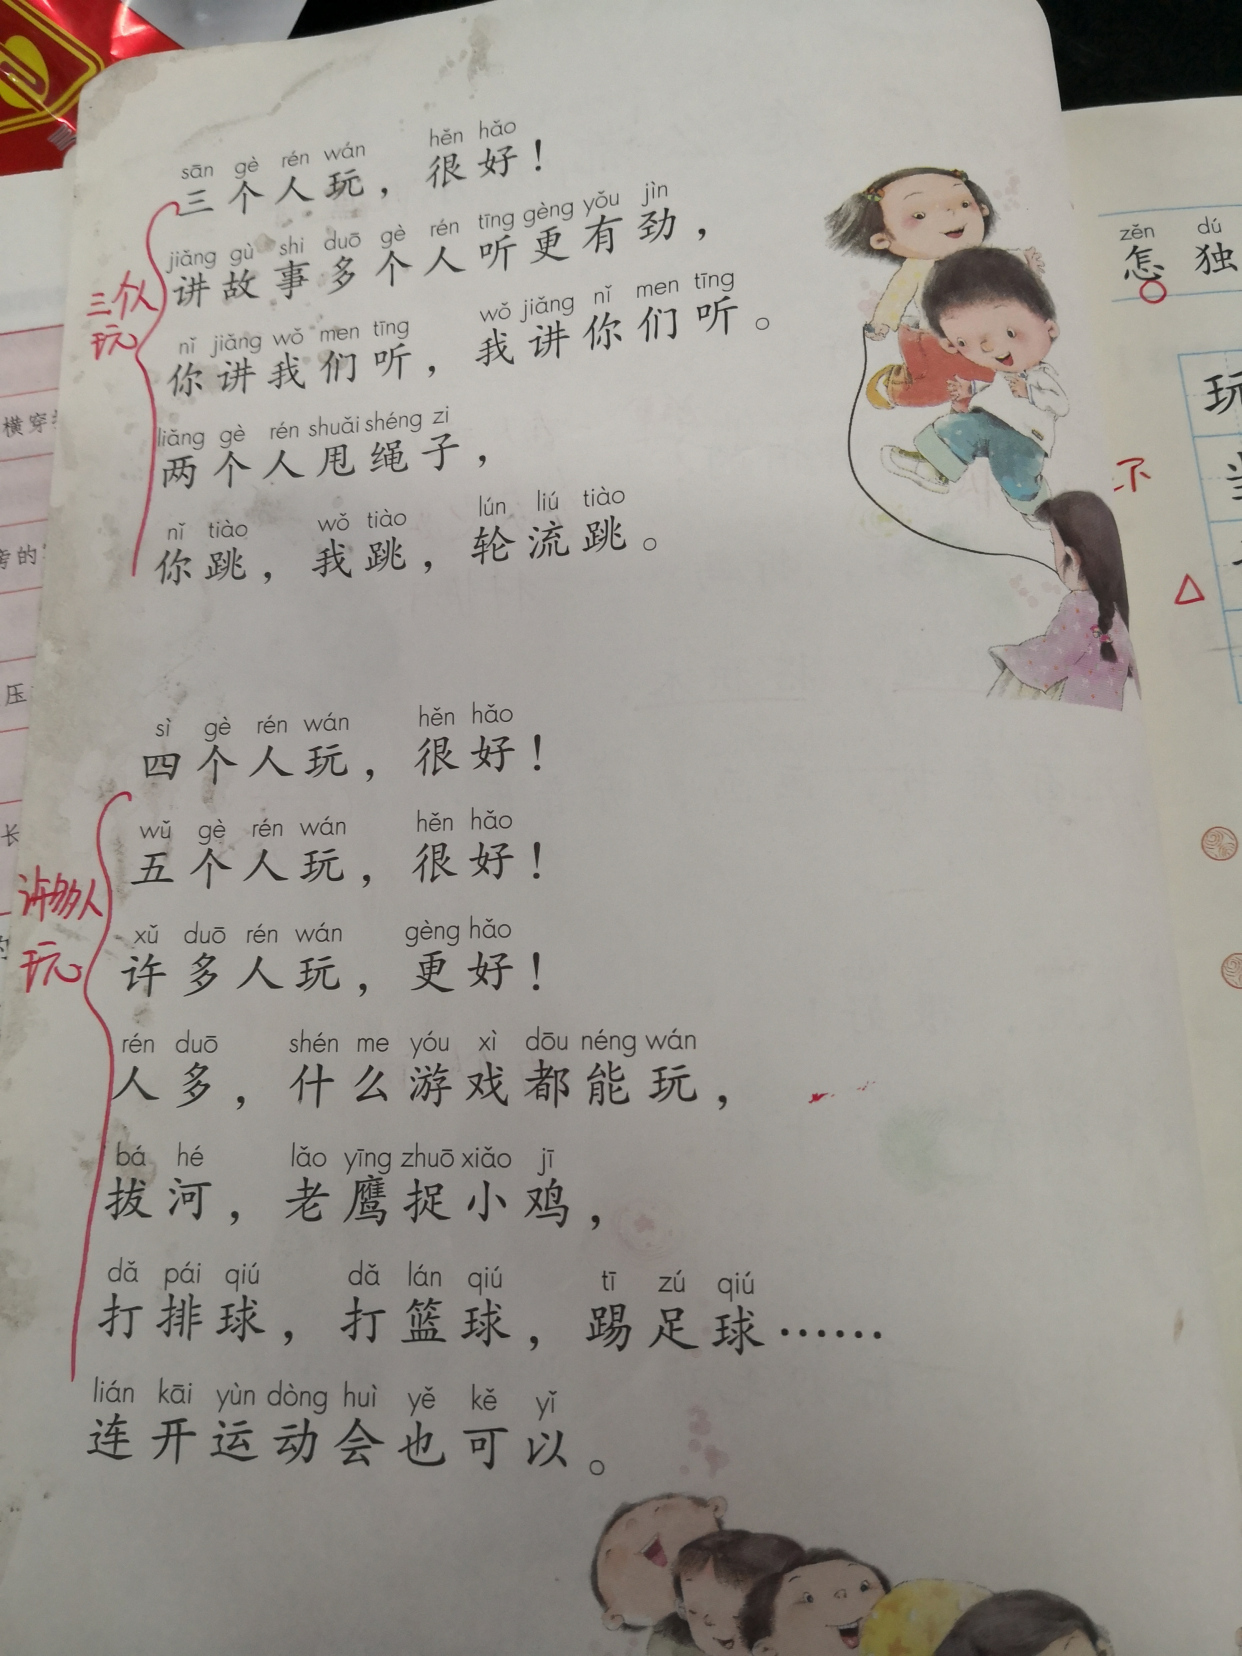 sān gè rén wán hěn hǎo
三个人玩，很好！
jiǎng gù shi duō gè rén tīng gèng yǒu jìn
讲故事多个人听更有劲，
三个人
玩
nǐ jiǎng wǒ men tīng wǒ jiǎng nǐ men tīng
你讲我们听，我讲你们听。
liǎng gè rén shuǎi shéng zi
两个人甩绳子，
nǐ tiào wǒ tiào lún liú tiào
你跳，我跳，轮流跳。
sì gè rén wán hěn hǎo
四个人玩，很好！
wǔ gè rén wán hěn hǎo
五个人玩，很好！
许多人
玩
xǔ duō rén wán gèng hǎo
许多人玩，更好！
rén duō shén me yóu xì dōu néng wán
人多，什么游戏都能玩，
bá hé lǎo yīng zhuō xiǎo jī
拔河，老鹰捉小鸡，
dǎ pái qiú dǎ lán qiú tī zú qiú
打排球，打篮球，踢足球……
lián kāi yùn dòng huì yě kě yǐ
连开运动会也可以。
横穿
旁的
压
长
zěn dú
怎独
玩
不